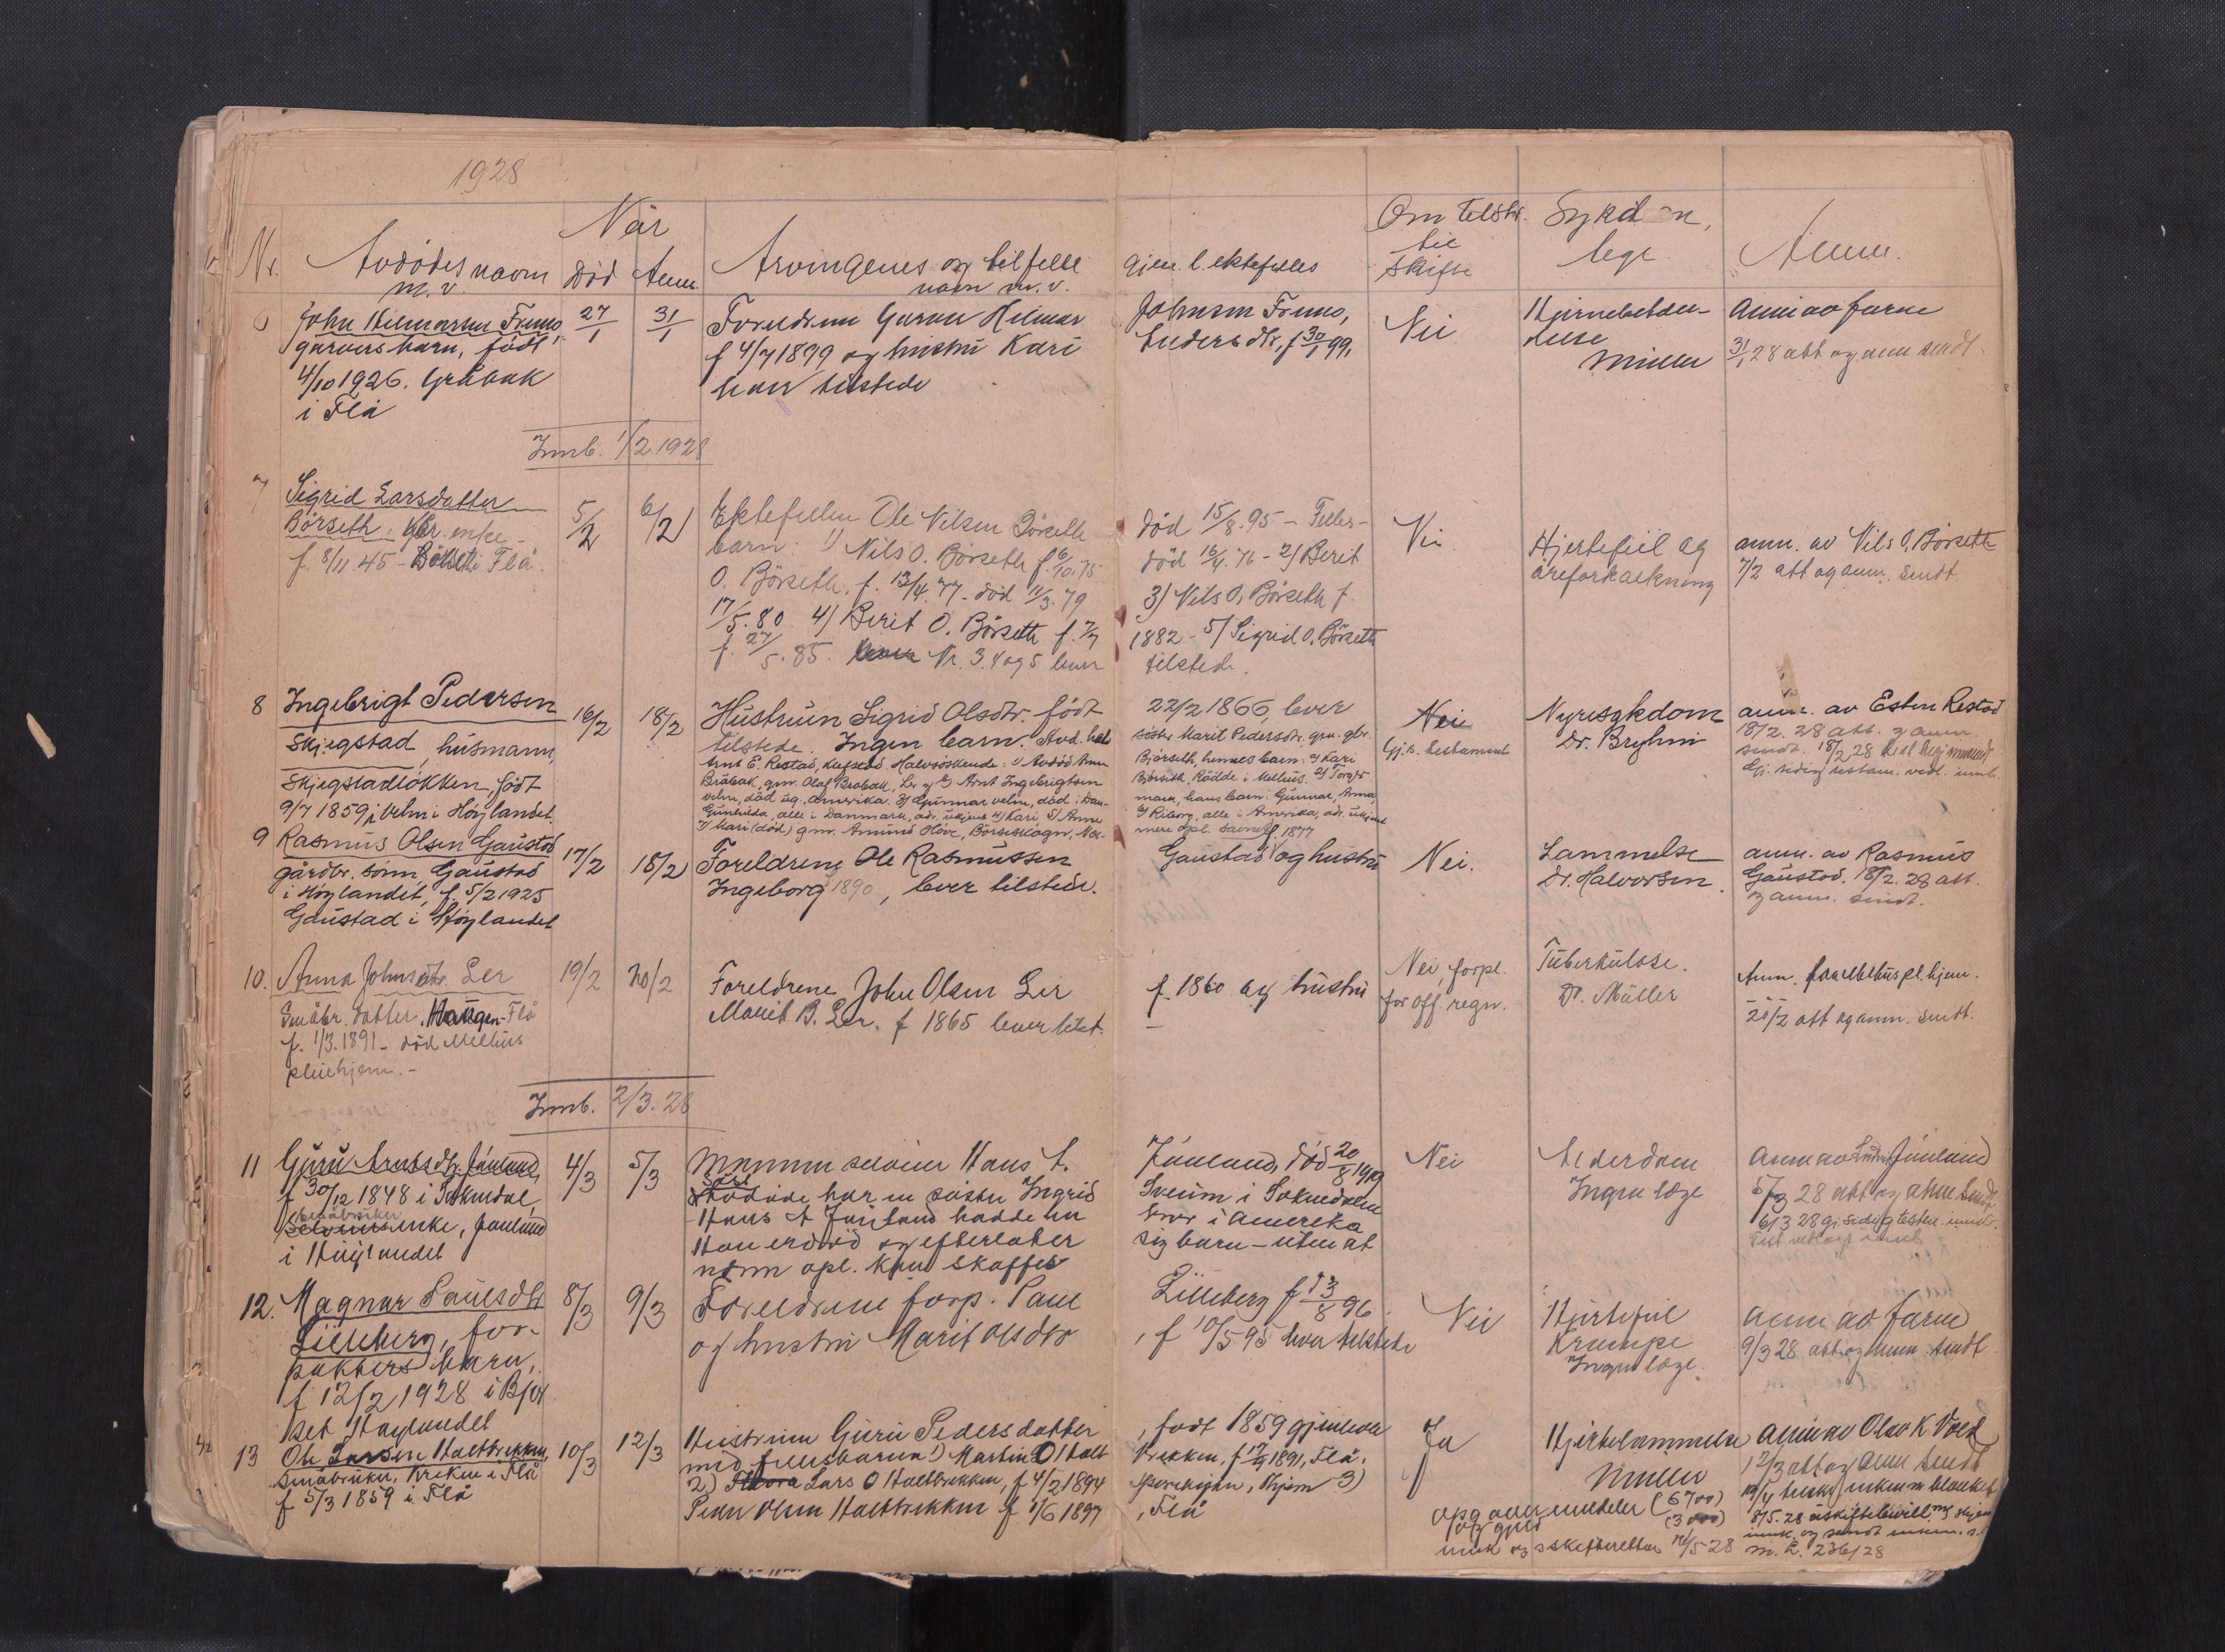 1928
Når
Om tilstr. Sykdom,
Nr. Avdødes navn Død Anm. Arvingenes og tilfelle gjen. l. ektefelles til lege Anm.
m. v. navn m. v. skifte
6 John Hilmarsen Fremo, 27/1 31/1 Foreldrene Garver Hilmar Johnsen Fremo, Nei Hjernebetæn- Anm av faren
garvers barn, født f 4/7 1899 og hustru Kari Anders dtr, f 30/1 99, delse 31/1 28 att og anm sendt.
4/10 1926. Gråbak bor tilstede Müller
i Flå
Innb. 1/2 1928
7 Sigrid Larsdatter 5/2 6/2 Ektefellen Ole Nilsen Børseth død 15/8.95 - Felles- Nei Hjertefeil og anm. av Nils O. Børseth
Børseth. gbr. enke - barn: 1) Nils O. Børseth f. 6/10.75 død 16/4.76 - 2) Berit åreforkalkning 7/2 att og anm. sendt
f. 8/11.45 - Børseth Flå. O. Børseth. f. 13/4.77 - død 11/3.79 3) Nils O. Børseth f.
17/5.80 4) Berit O. Børseth f. 7/7 1882 - 5) Sigrid O. Børseth
f. 27/5.85. Nr. 3. 4 og 5 lever tilstede.
8 Ingebrigt Pedersen 16/2 18/2 Hustruen Sigrid Olsdtr. født 22/2 1866, lever Nei Nyresykdom anm. av Esten Restad
Skjegstad, husmann, tilstede. Ingen barn. Avd. søster Marit Pedersdtr. gm. gbr. Gj.s. testament Dr. Bryhni 18/2. 28 att. og anm.
Skjegstadløkken, født Arnt E. Restad, Halvsøskende: 1) Avdød Anne Bjørseth, hennes barn: sendt. 18/2 28
9/7 1859 i Hølandet. Bråbak, gm. Olaf Bråbak, Ler og Arnt Ingebrigtsen Bjørseth, Rødde i Melhus. Gj. sidig testam. vedl. innb.
død ug. Amerika. 3) Gunnar død: Dan- mark, hans barn: Gunnar, Anna
Gunhilda, alle i Danmark, adr. ukjent 4) Kari 5) Anne 6) Riborg, alle i Amerika, adr. ukjent
7) Mari (død) gm. Amund Børseskogn, Nær- mere opl. savnes f. 1877
9 Rasmus Olsen Gaustad 17/2 18/2 Foreldrene Ole Rasmussen Gaustad og hustru Nei. Lammelse anm. av Rasmus
gårdbr. sønn, Gaustad Ingeborg 1890, lever tilstede. Dr. Halvorsen. Gaustad. 18/2. 28 att.
i Høylandet, f. 5/2 1925 og anm. sendt.
Gaustad i Høylandet
10. Anna Johnsdtr. Ler 19/2 20/2 Foreldrene John Olsen Ler f. 1860 og hustru Nei, forpl. Tuberkulose. Anm. fra Melhus pl. hjem.
Småbr. datter. Haugen - Flå Marit B. Ler. f 1865 lever tilst. for off. regn. Dr. Müller 20/2 att og anm. sendt.
f. 1/3.1891 - død Melhus
pleiehjem. -
Innb. 2/3. 28
11 Guru Arntsdtr. Jåvland, 4/3 5/3 Hans A. Jåvland, død 20/8 1919 Nei Alderdom Anm av Jåvland
f 30/12 1848 i Soknedal, Avdøde har en søster Ingrid Sveum i Soknedalen Ingen læge 5/3 28 att og anm sendt
småbruker enke, Jåvland Hans A Jåvland hadde en bror i Amerika 6/3 28 gj. sidig testm. innb.
i Høylandet Han er død og efterlater sig barn - uten at
nærm opl. kan skaffes
12. Magnar Paulsdtr 8/3 9/3 Foreldrene forp. Paul Lilleberg f 13/8 96 Nei Hjertefeil Anm av faren
Lilleberg, for- og hustru Marit Olsdtr , f 10/5 95 lever tilstede Krampe 9/3 28 att og anm sendt
pakters barn, Ingen læge.
f 12/2 1928 i Bjør
set Høylandet
13 Ole Larsen Haltbrekken, 10/3 12/3 Hustruen Guru Pedersdatter , født 1859 gjenlever Ja Hjertelammelse Anm av Olav K Vold
småbruker, Brekken i Flå med fellesbarna 1) Martin O Halt- brekken, f 17/9 1891, Flå. Müller 12/3 att og anm sendt
f 5/3 1859 i Flå 2) Lars O Haltbrekken, f 4/2 1894 3)
Peder Olsen Haltbrekken f 1/6 1897 , Flå
opg over midler (6700) 8/5. 28
og gjeld (3000)
16/5 28 m. L. 236/28